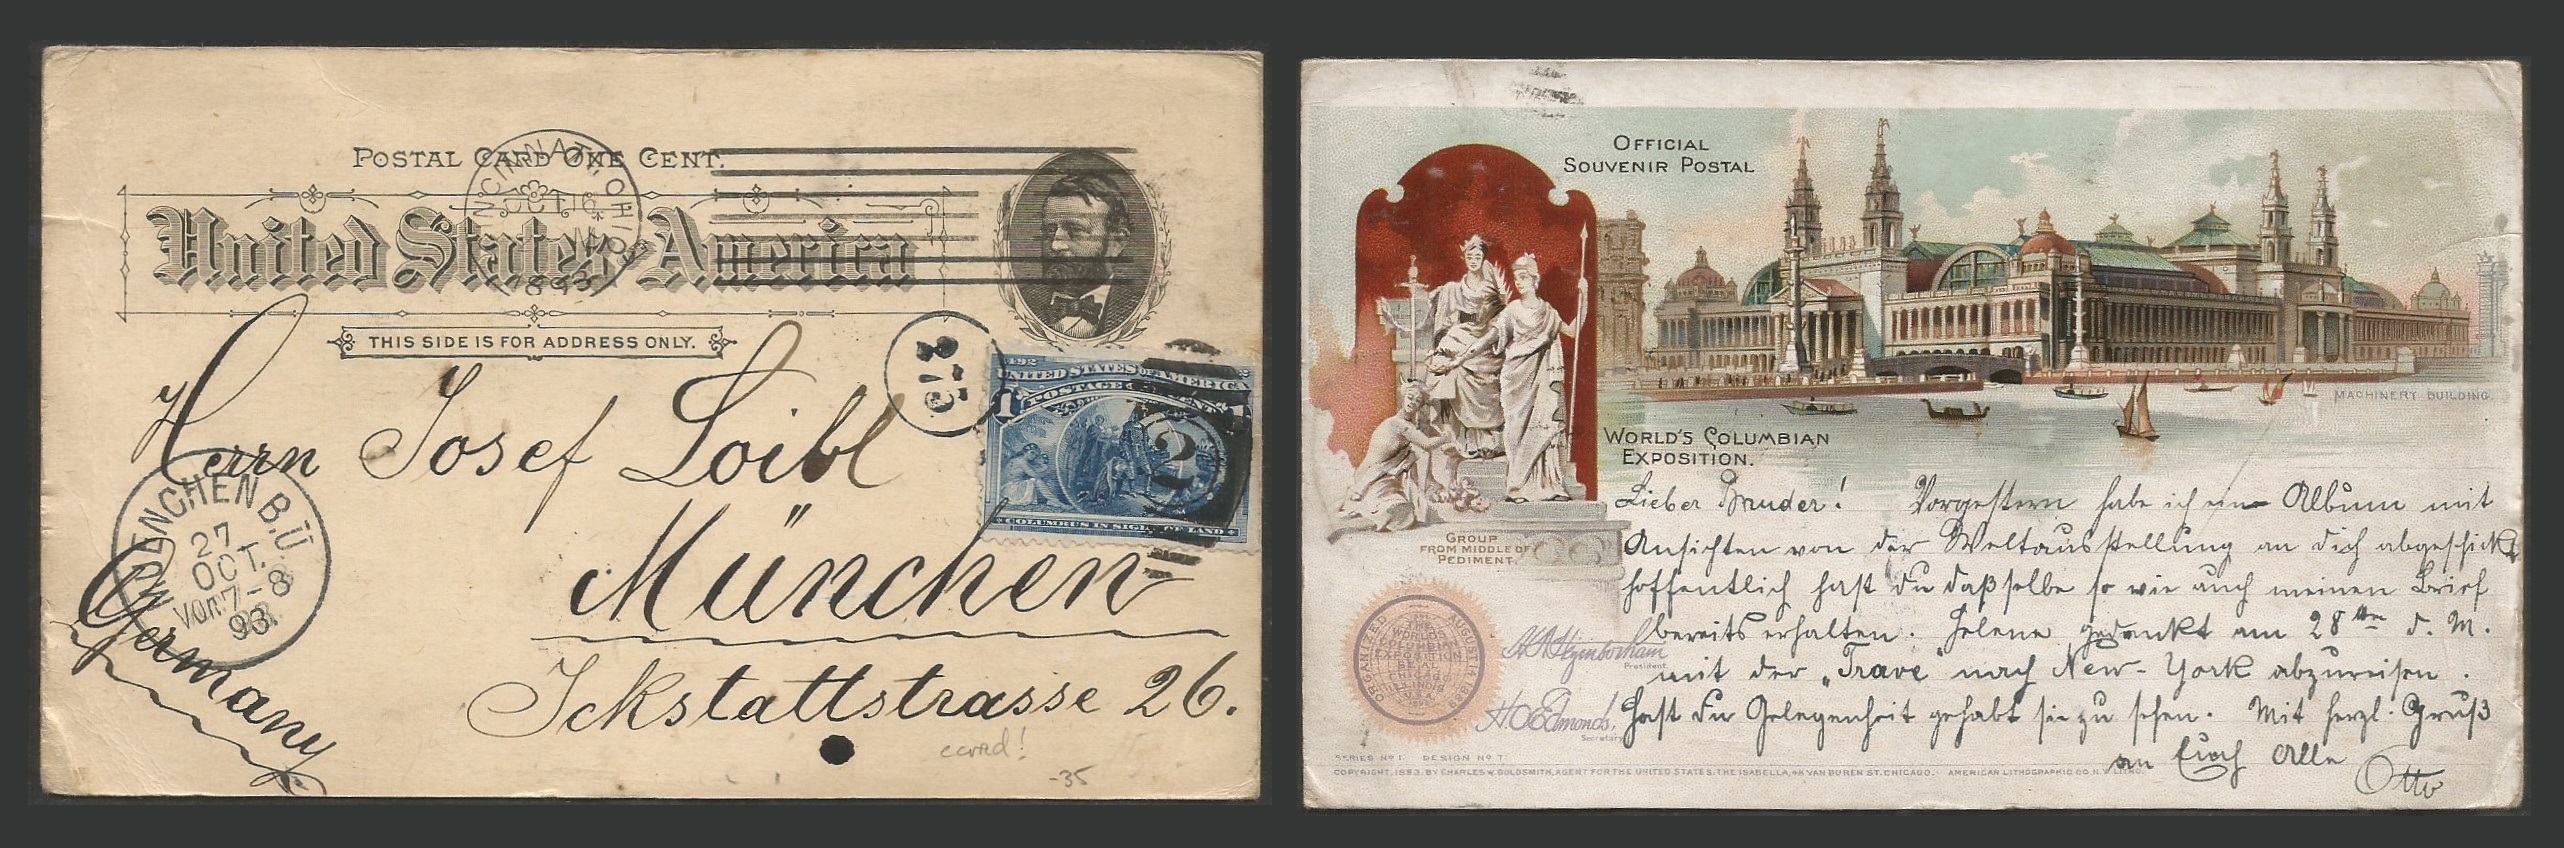 POSTAL CARD ONE CENT.
CINCINNATI, OHIO
OCT 16
1893
United States America
THIS SIDE IS FOR ADDRESS ONLY.
1492
UNITED STATES OF AMERICA
POSTAGE ONE CENT
1
1
2
COLUMBUS IN SIGHT OF LAND
Herrn Josef Loibl
München
Ickstattstrasse 26.
Germany
MUENCHEN B.Ü
27
OCT.
VOR. 7-8
93
-35
OFFICIAL
SOUVENIR POSTAL
MACHINERY BUILDING.
WORLD'S COLUMBIAN
EXPOSITION.
GROUP
FROM MIDDLE OF
PEDIMENT.
THE
WORLD'S
COLUMBIAN
EXPOSITION
SEAL
CHICAGO
ILLINOIS
U.S.A.
ORGANIZED AUGUST 1891
President.
H.O. Edmonds,
Secretary
Lieber Bruder! Vorgestern habe ich ein Album mit
Ansichten von der Weltausstellung an dich abgeschickt
hoffentlich hast du daßselbe so wie auch meinen Brief
bereits erhalten. Helene gedenkt am 28ten d. M.
mit der „Trave" nach New-York abzureisen.
Hast du Gelegenheit gehabt sie zu sehen. Mit herzl. Gruß
an Euch Alle
Otto
SERIES No 1 DESIGN No 7
COPYRIGHT, 1893, BY CHARLES W. GOLDSMITH, AGENT FOR THE UNITED STATES, THE ISABELLA, 48 VAN BUREN ST. CHICAGO. AMERICAN LITHOGRAPHIC CO. N.Y.